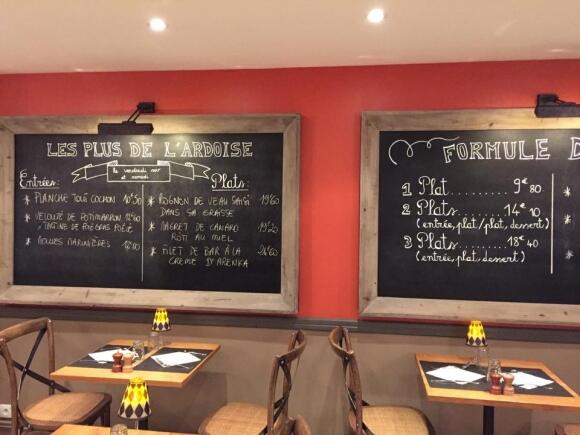 LES PLUS DE L'ARDOISE
le vendredi soir
et samedi
Entrées:
* PLANCHE TOUT COCHON 10€50
* VELOUTÉ DE POTIMARRON
TARTINE DE FOIE GRAS POÊLÉ
* MOULES MARINIÈRES
Plats:
* ROGNON DE VEAU SAISI 19€60
DANS SA GRAISSE
* MAGRET DE CANARD 19€20
RÔTI AU MIEL
* FILET DE BAR À LA
CREME D'ARENKA
FORMULE D
1 Plat......... 9€80
2 Plats........ 14€10
(entrée, plat/plat, dessert)
3 Plats........ 18€40
(entrée, plat, dessert)